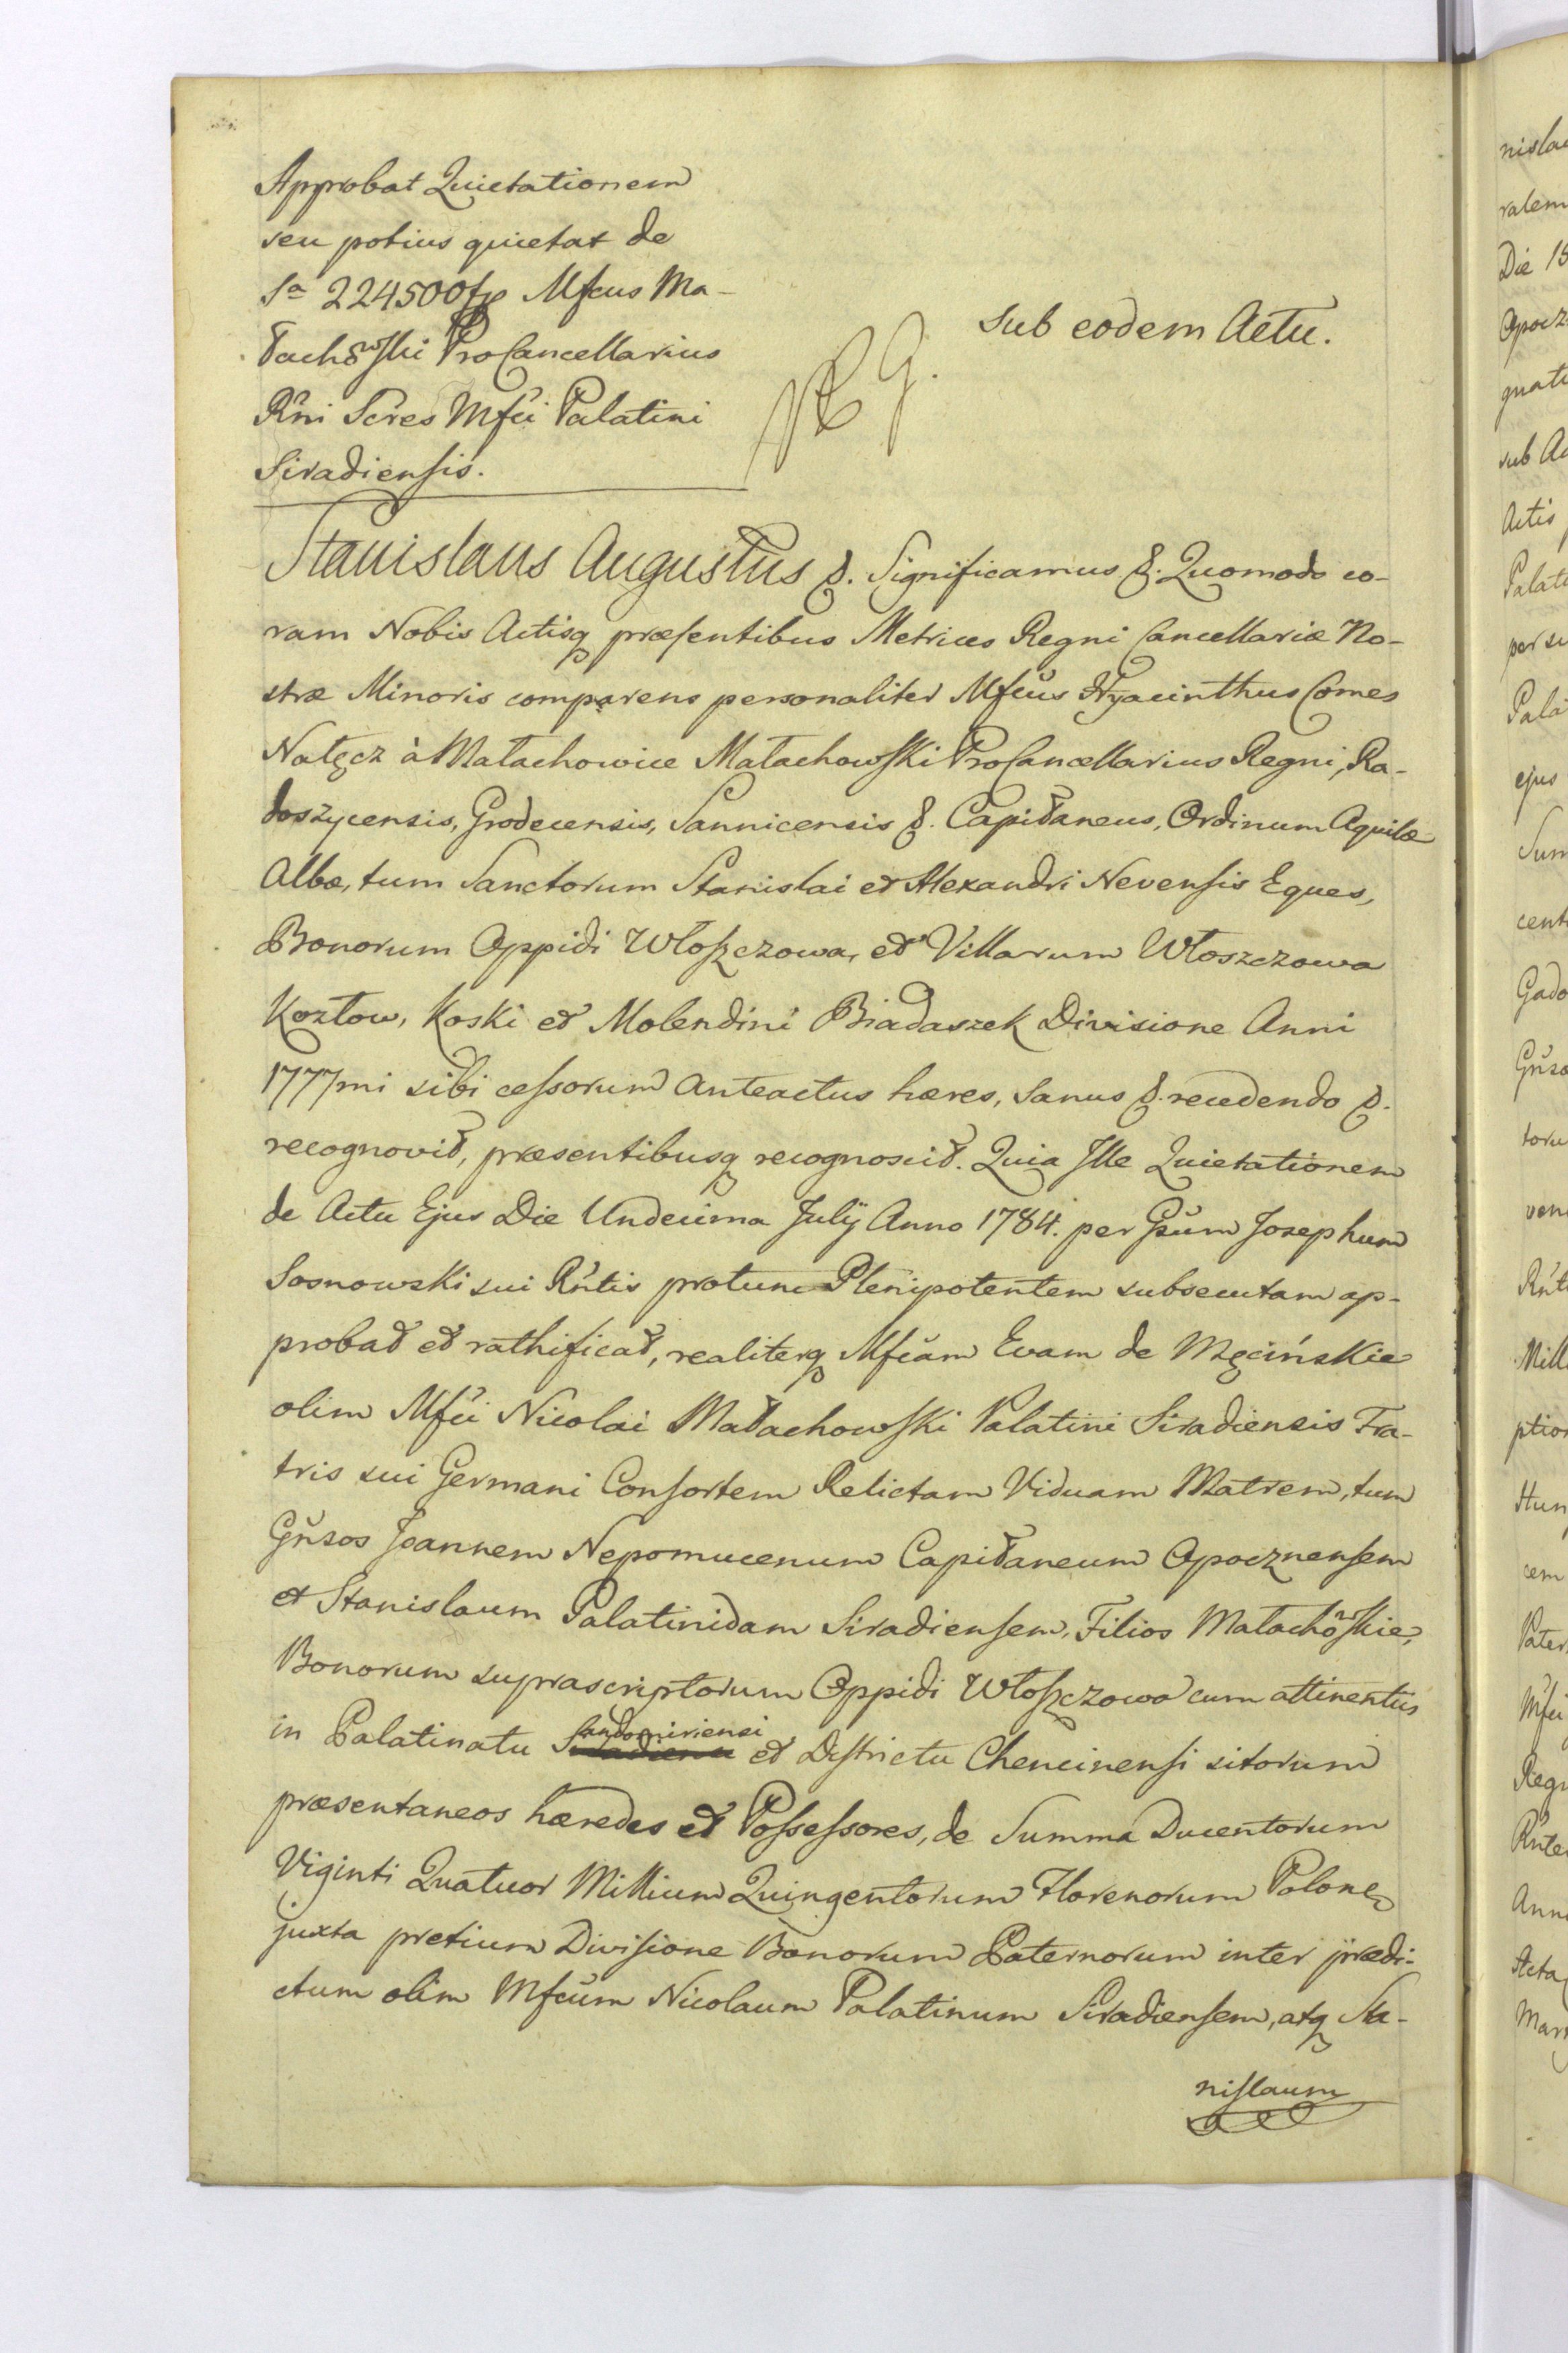 Approbat Quietationem
seu potius quietat de
Sa 224500 fp Mfcus Ma-
łachowski ProCancellarius
Rni Scres Mfci Palatini
Siradiensis.
Sub eodem Actu.
Stanislaus Augustus &. Significamus &. Quomodo co-
ram Nobis Actisq præsentibus Metrices Regni Cancellariæ No-
stræ Minoris comparens personaliter Mfcus Hyacinthus Comes
Nałęcz à Małachowice Małachowski ProCancellarius Regni, Ra-
doszycensis, Grodecensis, Sannicensis &. Capitaneus, Ordinum Aquilæ
Albæ, tum Sanctorum Stanislai et Alexandri Nevensis Eques,
Bonorum Oppidi Włoszczowa, et Villarum Włoszczowa
Kozłow, Koski et Molendini Biadaszek Divisione Anni
1777mi sibi cessorum anteactus hæres, Sanus &. recedendo &.
recognovit, præsentibusq recognoscit. Quia Ille Quietationem
de Actu Ejus Die Undecima Julij Anno 1784. per Gsum Josephum
Sosnowski sui Rntis protunc Plenipotentem subsecutam ap-
probat et rathificat, realiterq Mfcam Evam de Męcińskie
olim Mfci Nicolai Małachowski Palatini Siradiensis Fra-
tris sui Germani Consortem Relictam Viduam Matrem, tum
Gnsos Joannem Nepomucenum Capitaneum Opocznensem
et Stanislaum Palatinidam Siradiensem, Filios Małachowskie,
Bonorum suprascriptorum Oppidi Włoszczowa cum attinentus
in Palatinatu Sandomiriensi et Districtu Chencinensi sitorum
præsentaneos hæredes et Possessores, de Summa Ducentorum
Viginti Quatuor Millium Quingentorum Florenorum Polone
juxta pretium Divisione Bonorum Paternorum inter prædi-
ctum olim Mfcum Nicolaum Palatinum Siradiensem, atq Sta-
nislaum